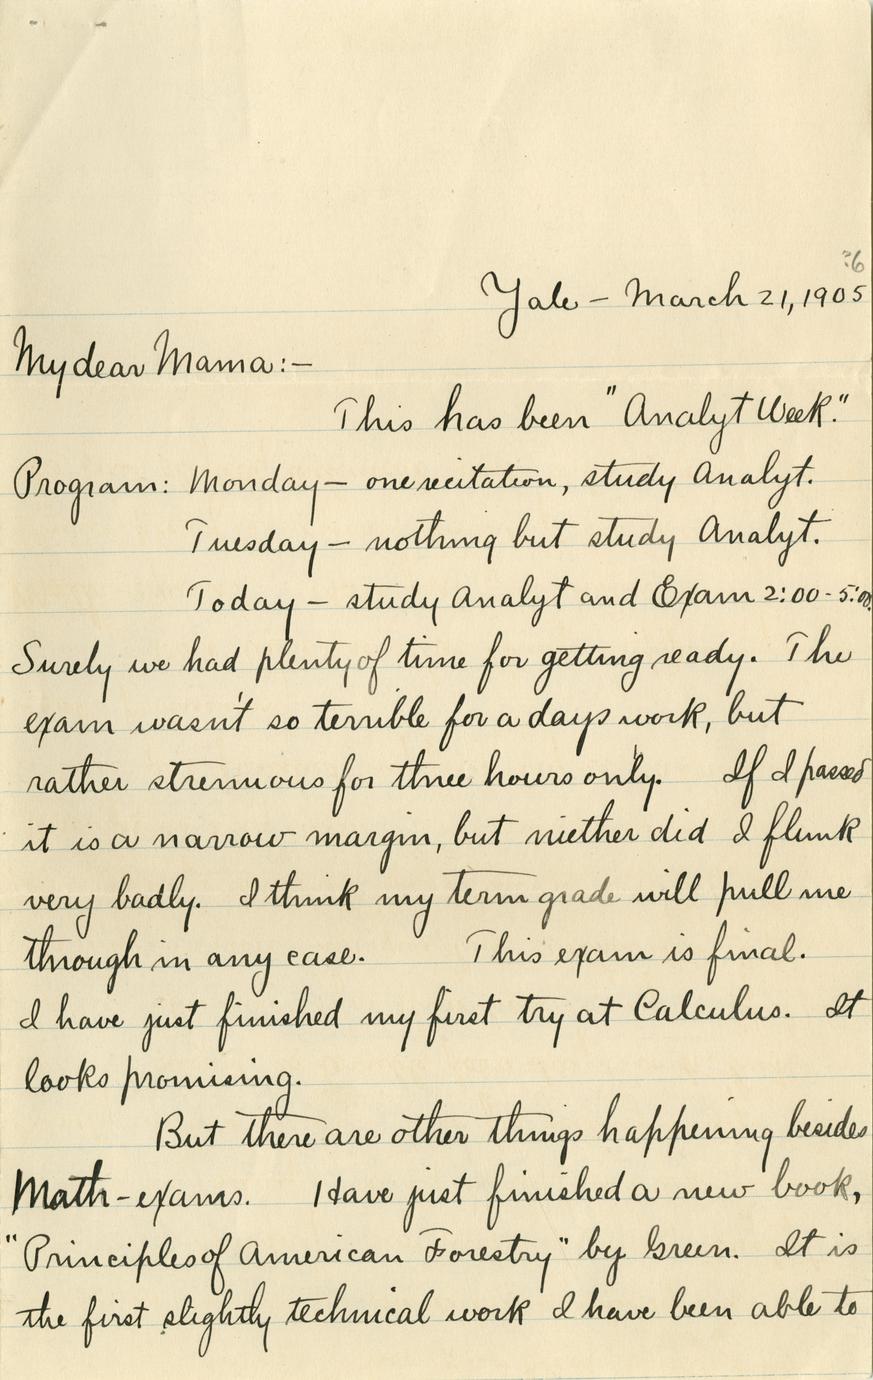 ?6
Yale – March 21, 1905
My dear Mama:–
This has been "Analyt Week."
Program: Monday – one recitation, study Analyt.
Tuesday – nothing but study Analyt.
Today – study Analyt and Exam 2:00 - 5:00.
Surely we had plenty of time for getting ready. The
exam wasn't so terrible for a days work, but
rather strenuous for three hours only. If I passed
it is a narrow margin, but niether did I flunk
very badly. I think my term grade will pull me
through in any case. This exam is final.
I have just finished my first try at Calculus. It
looks promising.
But there are other things happening besides
Math-exams. Have just finished a new book,
"Principles of American Forestry" by Green. It is
the first slightly technical work I have been able to